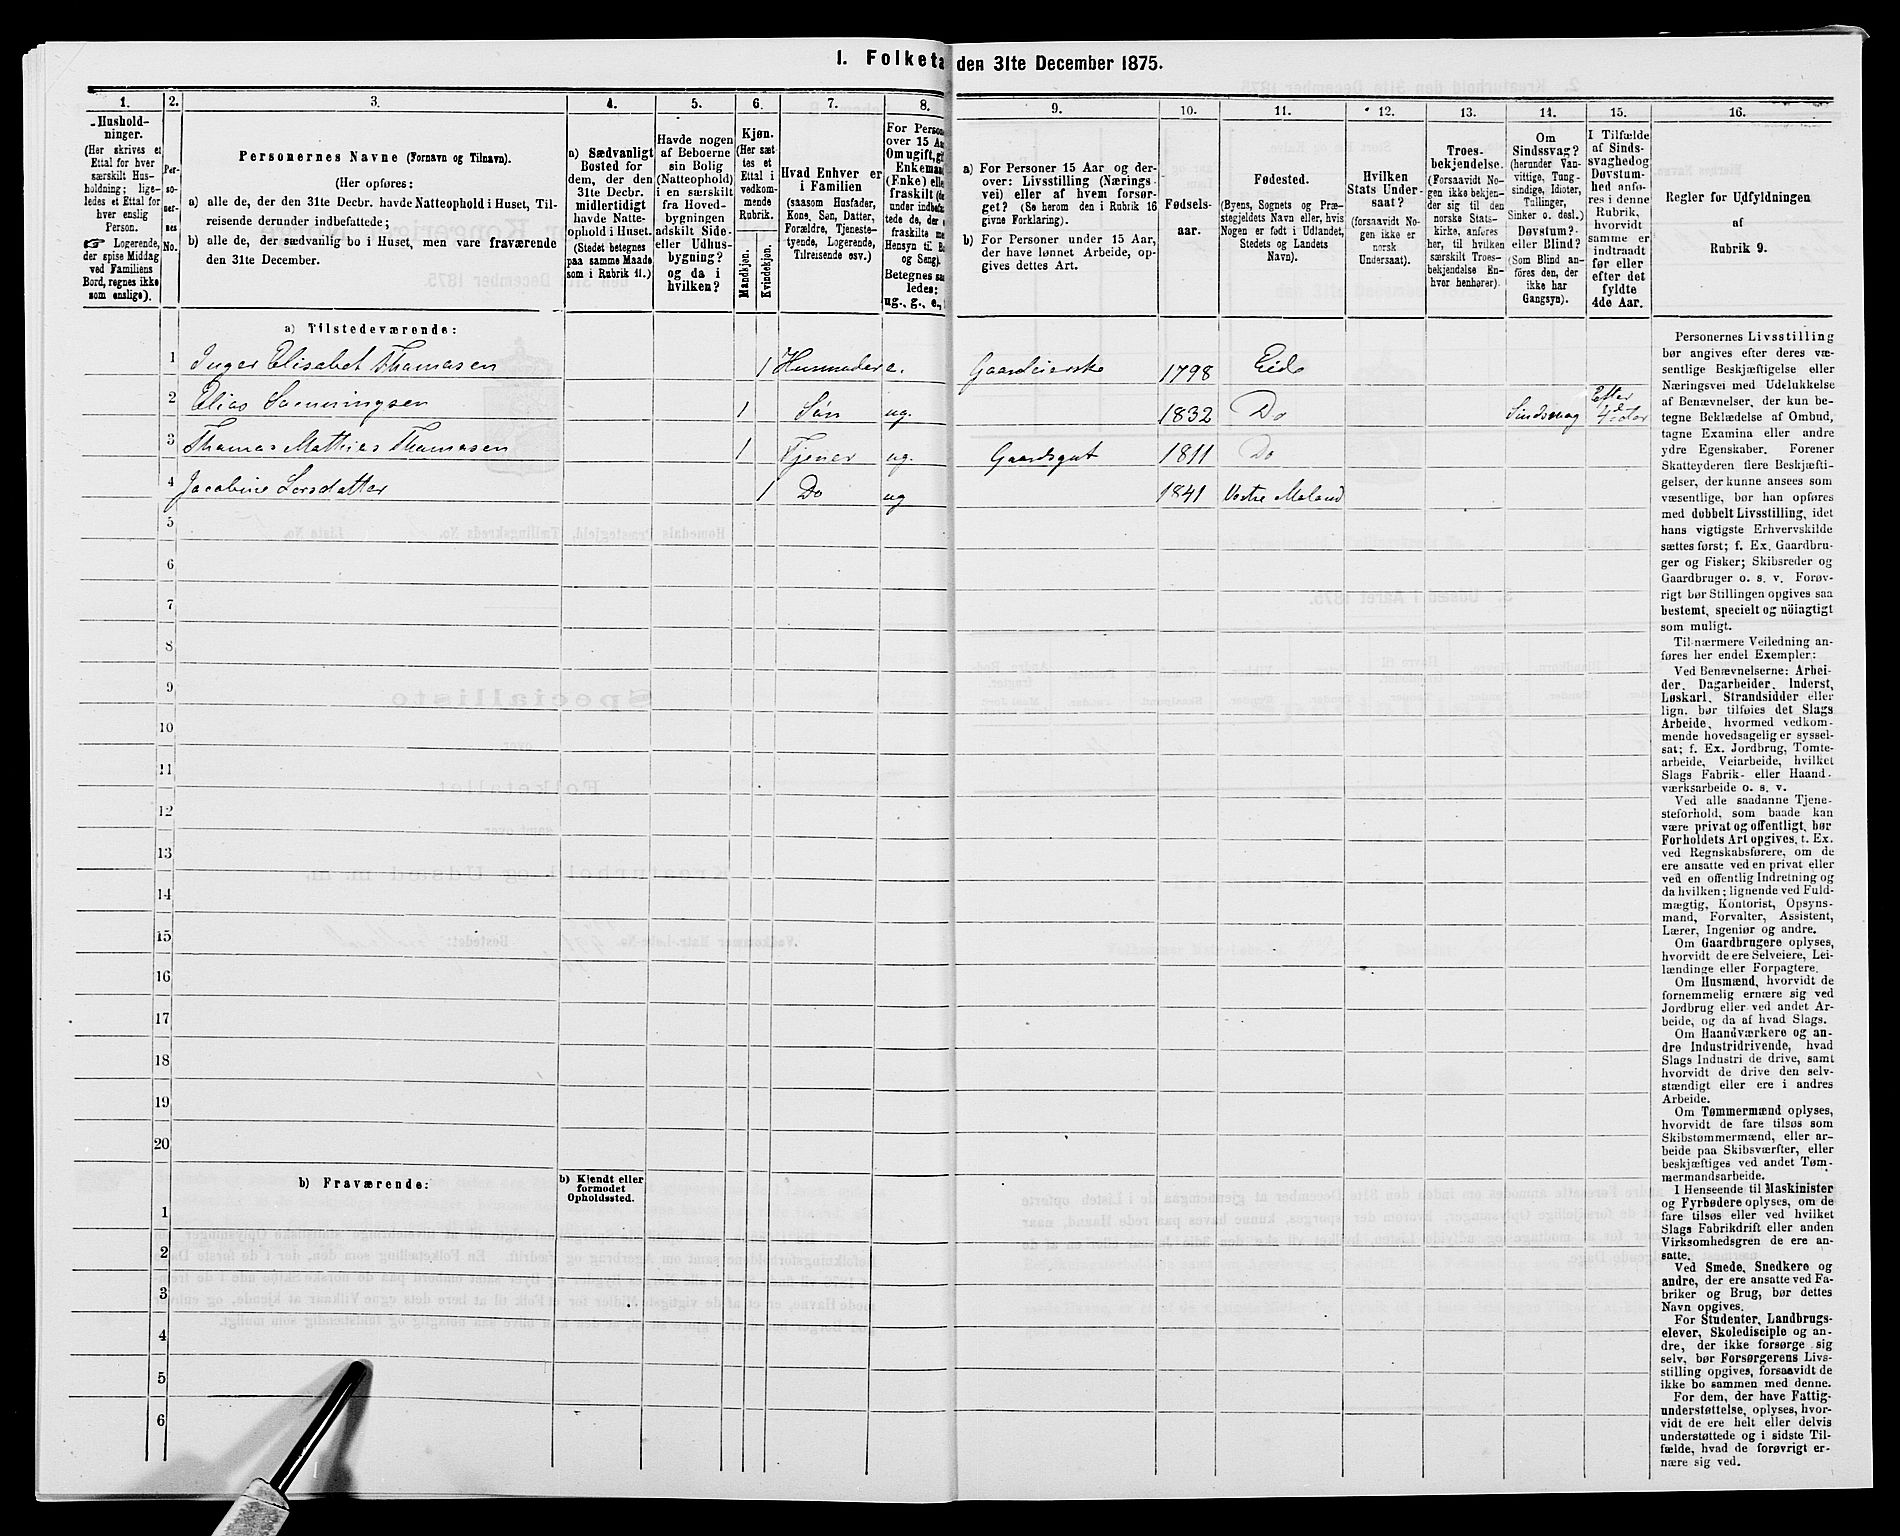 I. Folketæ den 31te December 1875.
1. 2. 3. 4. 5. 6. 7. 8. 9. 10. 11. 12. 13. 14. 15. 16.
Hushold-
ninger.
(Her skrives et
Ettal for hver
særskilt Hus-
holdning; lige-
ledes et Ettal for
hver enslig
Person.
☞ Logerende,
der spise Middag
ved Familiens
Bord, regnes ikke
som enslige).
Per-
so-
ner-
nes
No.
Personernes Navne (Fornavn og Tilnavn).
(Her opføres:
a) alle de, der den 31te Decbr. havde Natteophold i Huset, Til-
reisende derunder indbefattede;
b) alle de, der sædvanlig bo i Huset, men vare fraværende
den 31te December.
a) Sædvanligt
Bosted for
dem, der den
31te Decbr.
midlertidigt
havde Natte-
ophold i Huset.
(Stedet betegnes
paa samme Maade
som i Rubrik 11.)
Havde nogen
af Beboerne
sin Bolig
(Natteophold)
i en særskilt
fra Hoved-
bygningen
adskilt Side-
eller Udhus-
bygning?
og da i
hvilken?
Kjøn.
(Her sæt
tes et
Ettal i
vedkom-
mende
Rubrik.
Mandkjøn.
Kvindekjøn.
Hvad Enhver er
i Familien
(saasom Husfader,
Kone, Søn, Datter,
Forældre, Tjeneste-
tyende, Logerende,
Tilreisende osv.)
For Persone
over 15 Aa
Om ugift, gi
Enkeman
(Enke) elle
fraskilt
under indbe
tede de, der
fraskilte
Hensyn til B
og Seng).
Betegnes saa
ledes:
ug., g., e.,
a) For Personer 15 Aar og der-
over: Livsstilling (Nærings-
vei) eller af hvem forsør-
get? (Se herom den i Rubrik 16
givne Forklaring).
b) For Personer under 15 Aar,
der have lønnet Arbeide, op-
gives dettes Art.
Fødsels-
aar.
Fødested.
(Byens, Sognets og Præ-
stegjeldets Navn eller, hvis
Nogen er født i Udlandet,
Stedets og Landets
Navn).
Hvilken
Stats Under-
saat?
(forsaavidt No-
gen ikke er
norsk
Undersaat).
Troes-
bekjendelse.
(Forsaavidt No-
gen ikke bekjen-
der sig til den
norske Stats-
kirke, anføres
her, til hvilken
særskilt Troes-
bekjendelse En-
hver henhører).
Om
Sindssvag?
(herunder Van-
vittige, Tung-
sindige, Idioter,
Tullinger,
Sinker o. desl.)
Døvstum?
eller Blind?
(Som Blind an-
føres den, der
ikke har
Gangsyn).
I Tilfælde
af Sinds-
svaghed og
Døvstum-
hed anfø-
res i denne
Rubrik,
hvorvidt
samme er
indtraadt
før eller
efter det
fyldte
4de Aar.
Regler for Udfyldningen
af
Rubrik 9.
a) Tilstedeværende:
1 Inger Elisabet Thomasen 1 Husmoder e. Gaardeierske 1798 Eide
2 Elias Sømmingsen 1 Søn ug. 1832 Do Sindssvag Efter 4de Aar
3 Thomas Mathias Thomasen 1 Tjener ug. Gaardsgut 1811 Do
4 Jacobine Larsdatter 1 Do ug 1841 Vestre Moland
5
6
7
8
9
10
11
12
13
14
15
16
17
18
19
20
b) Fraværende:
b) Kjendt eller
formodet
Opholdssted.
1
2
3
4
5
6
Personernes Livsstilling
bør angives efter deres væ-
sentlige Beskjæftigelse eller
Næringsvei med Udelukkelse
af Benævnelser, der kun be-
tegne Beklædelse af Ombud,
tagne Examina eller andre
ydre Egenskaber. Forener
Skatteyderen flere Beskjæfti-
gelser, der kunne ansees som
væsentlige, bør han opføres
med dobbelt Livsstilling, idet
hans vigtigste Erhvervskilde
sættes først; f. Ex. Gaardbru-
ger og Fisker; Skibsreder og
Gaardbruger o. s. v. Forøv-
rigt bør Stillingen opgives saa
bestemt, specielt og nöiagtigt
som muligt.
Til nærmere Veiledning an-
føres her endel Exempler:
Ved Benævnelserne: Arbei-
der, Dagarbeider, Inderst,
Løskarl, Strandsidder eller
lign. bør tilføies det Slags
Arbeide, hvormed vedkom-
mende hovedsagelig er syssel-
sat; f. Ex. Jordbrug, Tomte-
arbeide, Veiarbeide, hvilket
Slags Fabrik- eller Haand-
værksarbeide o. s. v.
Ved alle saadanne Tjene-
steforhold, som baade kan
være privat og offentligt, bør
Forholdets Art opgives, t. Ex.
ved Regnskabsførere, om de
ere ansatte ved en privat eller
ved en offentlig Indretning og
da hvilken; lignende ved Fuld-
mægtig, Kontorist, Opsyns-
mand, Forvalter, Assistent,
Lærer, Ingeniør og andre.
Om Gaardbrugere oplyses,
hvorvidt de ere Selveiere, Lei-
lændinge eller Forpagtere.
Om Husmænd, hvorvidt de
fornemmelig ernære sig ved
Jordbrug eller ved andet Ar-
beide, og da af hvad Slags.
Om Haandværkere og an-
dre Industridrivende, hvad
Slags Industri de drive, samt
hvorvidt de drive den selv-
stændigt eller ere i andres
Arbeide.
Om Tømmermænd oplyses,
hvorvidt de fare tilsøs som
Skibstømmermænd, eller ar-
beide paa Skibsværfter, eller
beskjæftiges ved andet Tøm-
mermandsarbeide.
I Henseende til Maskinister
og Fyrbødere oplyses, om de
fare tilsøs eller ved hvilket
Slags Fabrikdrift eller anden
Virksomhedsgren de ere an-
satte.
Ved Smede, Snedkere og
andre, der ere ansatte ved Fa-
briker og Brug, bør dettes
Navn opgives.
For Studenter, Landbrugs-
elever, Skoledisciple og an-
dre, der ikke forsørge sig
selv, bør Forsørgerens Livs-
stilling opgives, forsaavidt de
ikke bo sammen med denne.
For dem, der have Fattig-
understøttelse, oplyses, hvor-
vidt de ere helt eller delvis
understøttede og i sidste Til-
fælde, hvad de forøvrigt er-
nære sig ved.